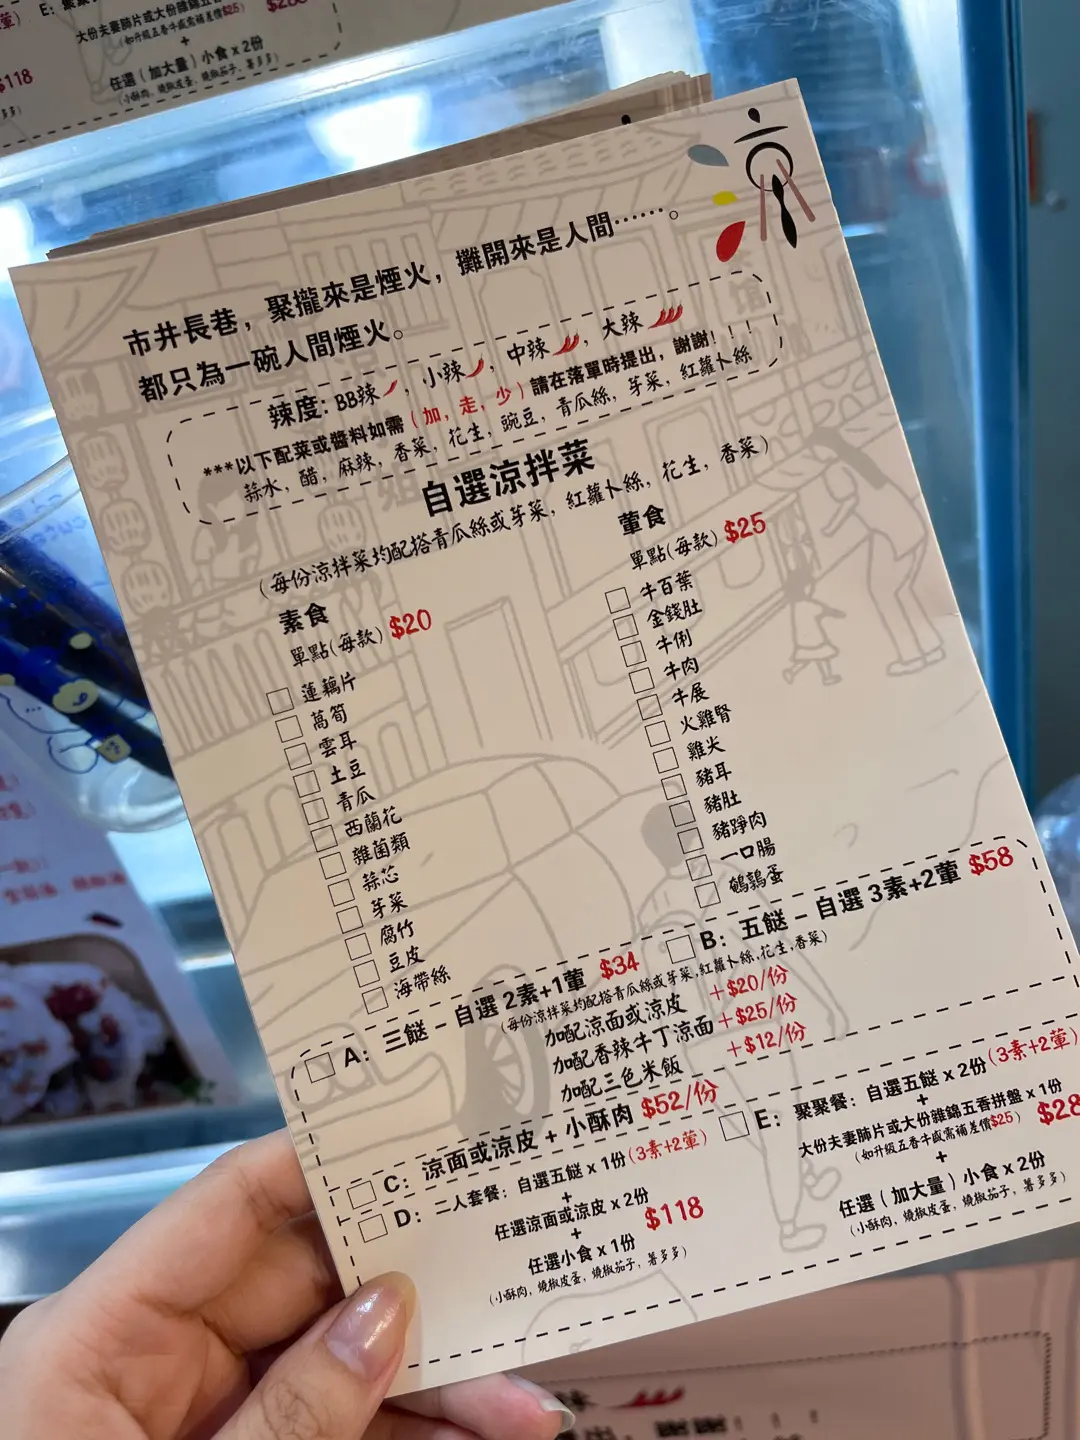 市井長巷，聚攏來是煙火，攤開來是人間⋯⋯。
都只為一碗人間煙火。
辣度: BB辣，小辣，中辣，大辣
***以下配菜或醬料如需（加，走，少）請在落單時提出，謝謝！！！
蒜水，醋，麻辣，香菜，花生，豌豆，青瓜絲，芽菜，紅蘿卜絲
自選涼拌菜
（每份涼拌菜均配搭青瓜絲或芽菜，紅蘿卜絲，花生，香菜）
素食
單點(每款) $20
蓮藕片
萵筍
雲耳
土豆
青瓜
西蘭花
雜菌類
蒜芯
芽菜
腐竹
豆皮
海帶絲
葷食
單點(每款) $25
牛百葉
金錢肚
牛脷
牛肉
牛展
火雞腎
雞尖
豬耳
豬肚
豬踭肉
一口腸
鵪鶉蛋
A： 三餸 – 自選 2素+1葷 $34
B： 五餸 – 自選 3素+2葷 $58
(每份涼拌菜均配搭青瓜絲或芽菜,紅蘿卜絲,花生,香菜)
加配涼面或涼皮 +$20/份
加配香辣牛丁涼面 +$25/份
加配三色米飯 +$12/份
C： 涼面或涼皮 + 小酥肉 $52/份
D： 二人套餐：自選五餸 x 1份(3素+2葷)
+
任選涼面或涼皮 x 2份
+
任選小食 x 1份 $118
(小酥肉，燒椒皮蛋，燒椒茄子，薯多多)
E： 聚聚餐：自選五餸 x 2份(3素+2葷)
+
大份夫妻肺片或大份雜錦五香拼盤 x 1份
(如升級五香牛戚需補差價$25) $28
+
任選（加大量）小食 x 2份
(小酥肉，燒椒皮蛋，燒椒茄子，薯多多)
大份夫妻肺片或大份雜錦五
(如升級五香牛戚需補差價$25)
+
任選（加大量）小食 x 2份
(小酥肉，燒椒皮蛋，燒椒茄子，薯多多)
$118